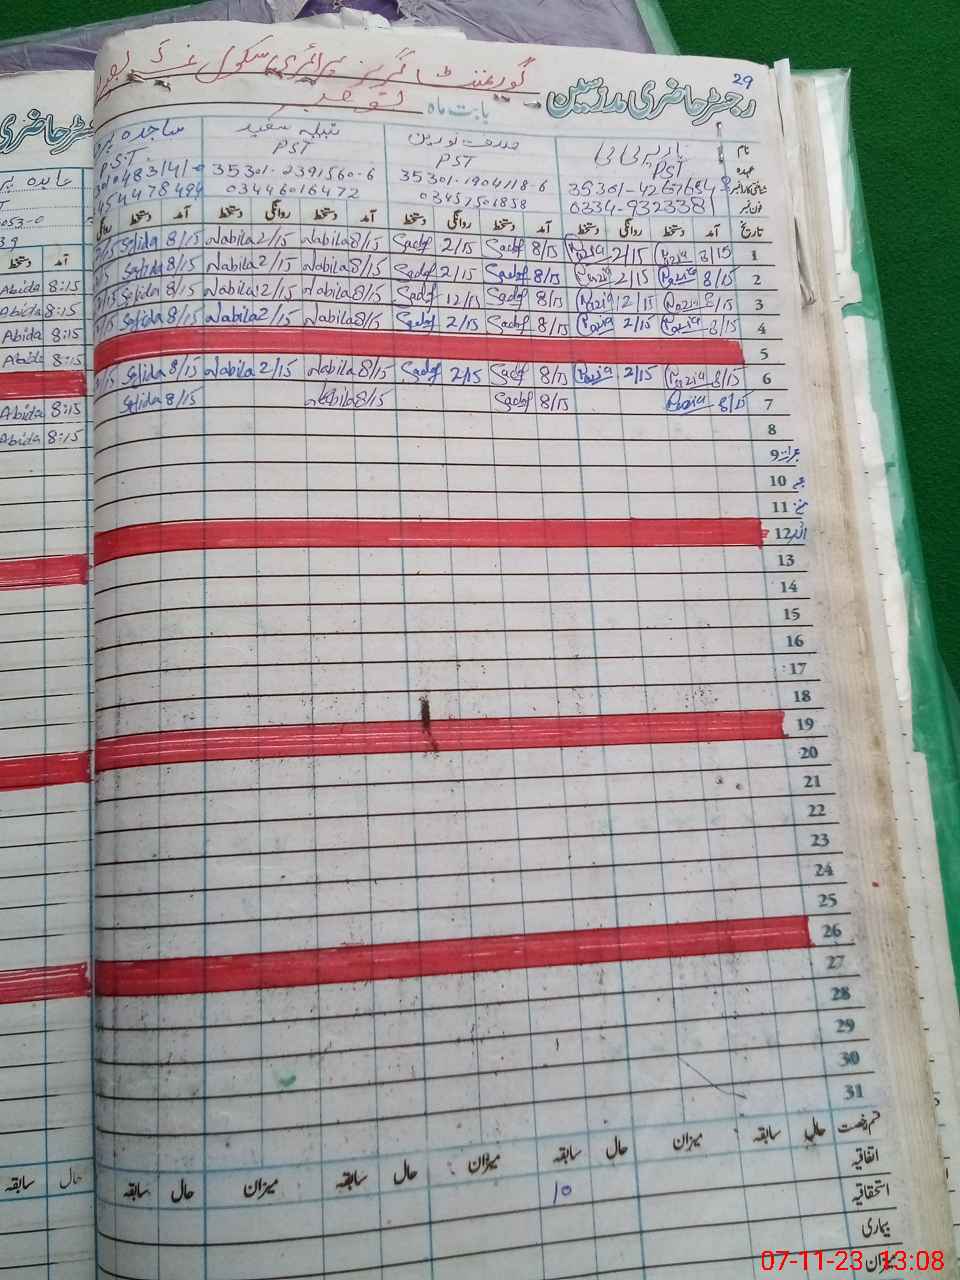 29
گورنمنٹ گرلز پرائمری سکول
رجسٹر حاضری مدرسین
بابت ماہ نومبر
نام
نازیہ بی بی
صدف نورین
نبیلہ سعید
ساجدہ
عہدہ
PST PST PST P.ST
شناختی کارڈ نمبر
35301-1904118-6 35301-2391560-6
فون نمبر
0334-9323381 03457501858 03446016472
تاریخ آمد دستخط روانگی دستخط آمد دستخط روانگی دستخط آمد دستخط روانگی دستخط آمد دستخط
1 8/15 Nazia 2/15 Nazia 8/15 Sadaf 2/15 Sadaf Nabila 8/15 Nabila 2/15 Sajida 8/15
2 8/15 Nazia 2/15 Nazia 8/15 Sadaf 2/15 Sadaf Nabila 8/15 Nabila 2/15 Sajida 8/15
3 8/15 Nazia 2/15 Nazia 8/15 Sadaf 12/15 Sadaf Nabila 8/15 Nabila 2/15 Sajida 8/15
4 8/15 Nazia 2/15 Nazia 8/15 Sadaf 2/15 Sadaf Nabila 8/15 Nabila 2/15 Sajida 8/15
5
6 8/15 Nazia 2/15 Nazia 8/15 Sadaf 2/15 Sadaf Nabila 8/15 Nabila 2/15 Sajida 8/15
7 8/15 Nazia 8/15 Sadaf Nabila 8/15 Sajida 8/15
8
9 جمعرات
10 جمعہ
11 ہفتہ
12 اتوار
13
14
15
16
17
18
19
20
21
22
23
24
25
26
27
28
29
30
31
قسم رخصت حال سابقہ میزان حال سابقہ میزان حال سابقہ میزان حال سابقہ
اتفاقیہ
استحقاقیہ 10
بیماری
میزان
عابدہ
053-0
آمد دستخط
Abida 8:15
Abida 8:15
Abida 8:15
Abida 8:15
Abida 8:15
Abida 8:15
حال سابقہ
07-11-23 13:08